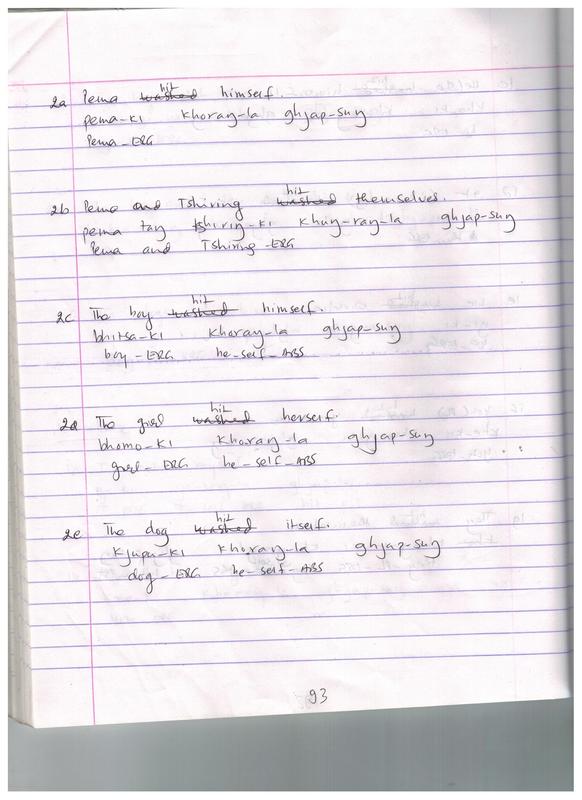 2a Pema washed hit himself.
pema-ki khoraŋ-la ghjap-suŋ
Pema-ERG
2b Pema and Tshiring washed hit themselves.
pema taŋ tshiriŋ-ki khuŋ-raŋ-la ghjap-suŋ
Pema and Tshiring-ERG
2c The boy washed hit himself.
bhitsa-ki khoraŋ-la ghjap-suŋ
boy-ERG he-self-ABS
2d The girl washed hit herself.
bhomo-ki khoraŋ-la ghjap-suŋ
girl-ERG he-self-ABS
2e The dog washed hit itself.
kjupu-ki khoraŋ-la ghjap-suŋ
dog-ERG he-self-ABS
93